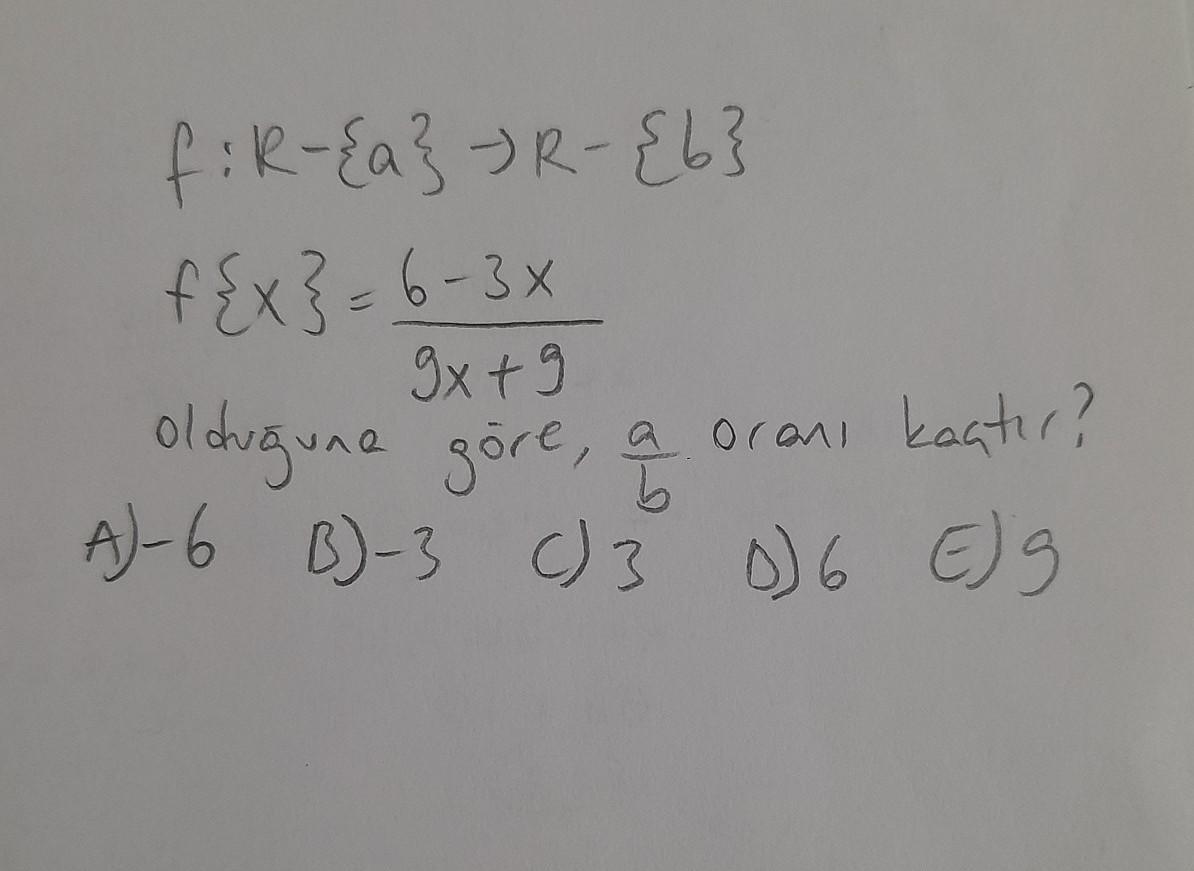 f:R-{a}→R-{b}
f{x}=6-3x/9x+9
olduğuna göre, a/b oranı kaçtır?
A)-6 B)-3 C)3 D)6 E)9